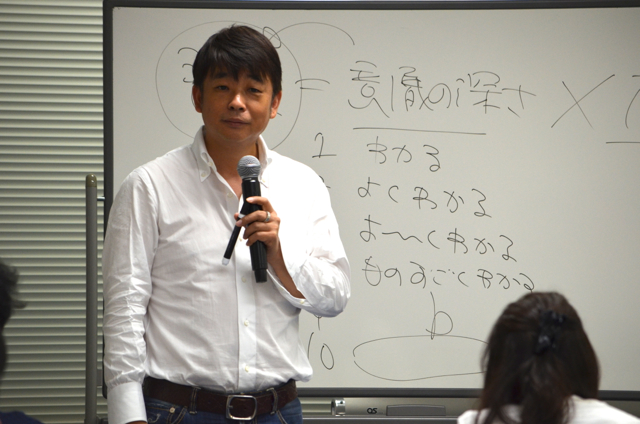 = 意識の深さ ×
1 わかる
よくわかる
よ〜くわかる
ものすごくわかる
b
10